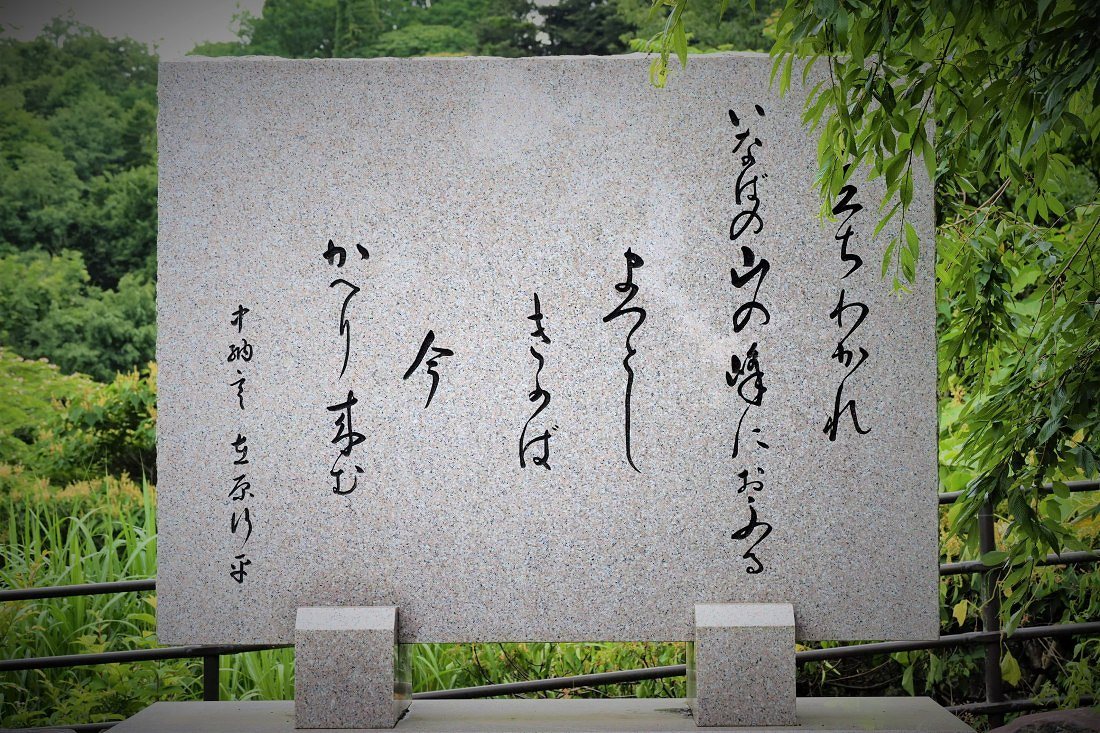 立ちわかれ
いなばの山の峰におふる
まつとし
きかば
今
かへり来む
中納言 在原行平